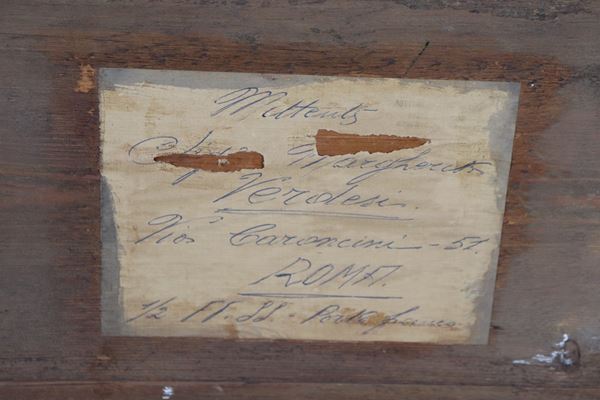 Mittente
Margherita
Verolesi.
Via Caroncini - 51.
ROMA.
1/2 FF. SS - Porto franco